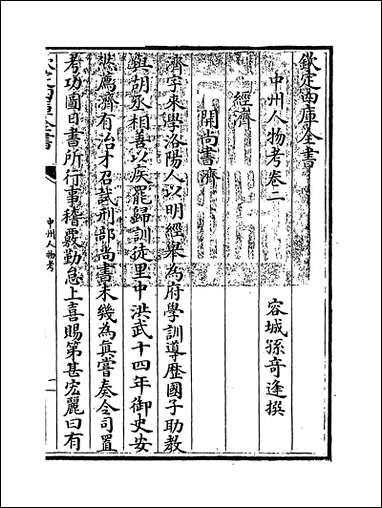 欽定四庫全書
中州人物考卷二
容城孫奇逢撰
經濟
開尚書濟
濟字來學洛陽人以明經舉為府學訓導歷國子助教
與胡丞相善以疾罷歸訓徒里中洪武十四年御史安
然薦濟有治才召試刑部尚書未幾為真嘗奏令司置
考功圖日書所行事稽覈勤怠上喜賜第甚宏麗曰有
欽定四庫全書
中州人物考